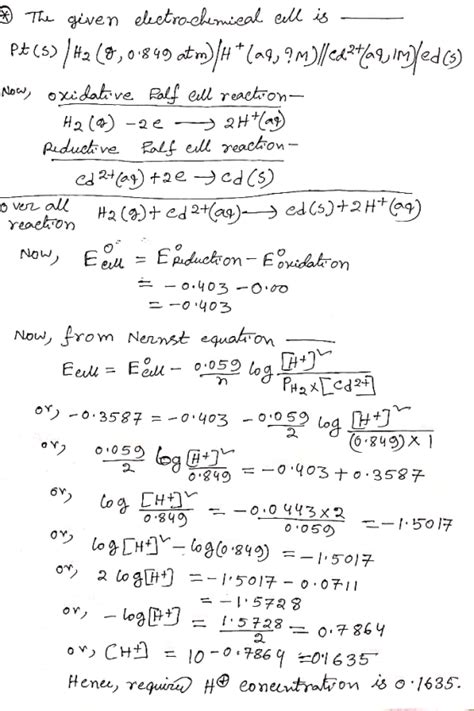 ⊛ The given electrochemical cell is ———
Pt(s)/H₂(g, 0.849 atm)/H⁺(aq, ?M)//cd²⁺(aq, 1M)/cd(s)
Now, oxidative half cell reaction—
H₂(g) -2e ⟶ 2H⁺(aq)
Reductive half cell reaction—
cd²⁺(aq) + 2e → cd(s)
over all H₂(g) + cd²⁺(aq) ⟶ cd(s) + 2H⁺(aq)
reaction
Now, E⁰cell = E⁰Reduction - E⁰oxidation
= -0.403 - 0.00
= -0.403
Now, from Nernst equation ———
Ecell = E⁰cell - 0.059/n log [H⁺]²/PH₂×[cd²⁺]
or, -0.3587 = -0.403 - 0.059/2 log [H⁺]²/(0.849)×1
or, 0.059/2 log [H⁺]²/0.849 = -0.403 + 0.3587
or, log [H⁺]²/0.849 = -0.0443×2/0.059 = -1.5017
or, log[H⁺]² - log(0.849) = -1.5017
or, 2 log[H⁺] = -1.5017 - 0.0711
= -1.5728
or, -log[H⁺] = 1.5728/2 = 0.7864
or, [H⁺] = 10-0.7864 = 0.1635
Hence, required H⊕ concentration is 0.1635.